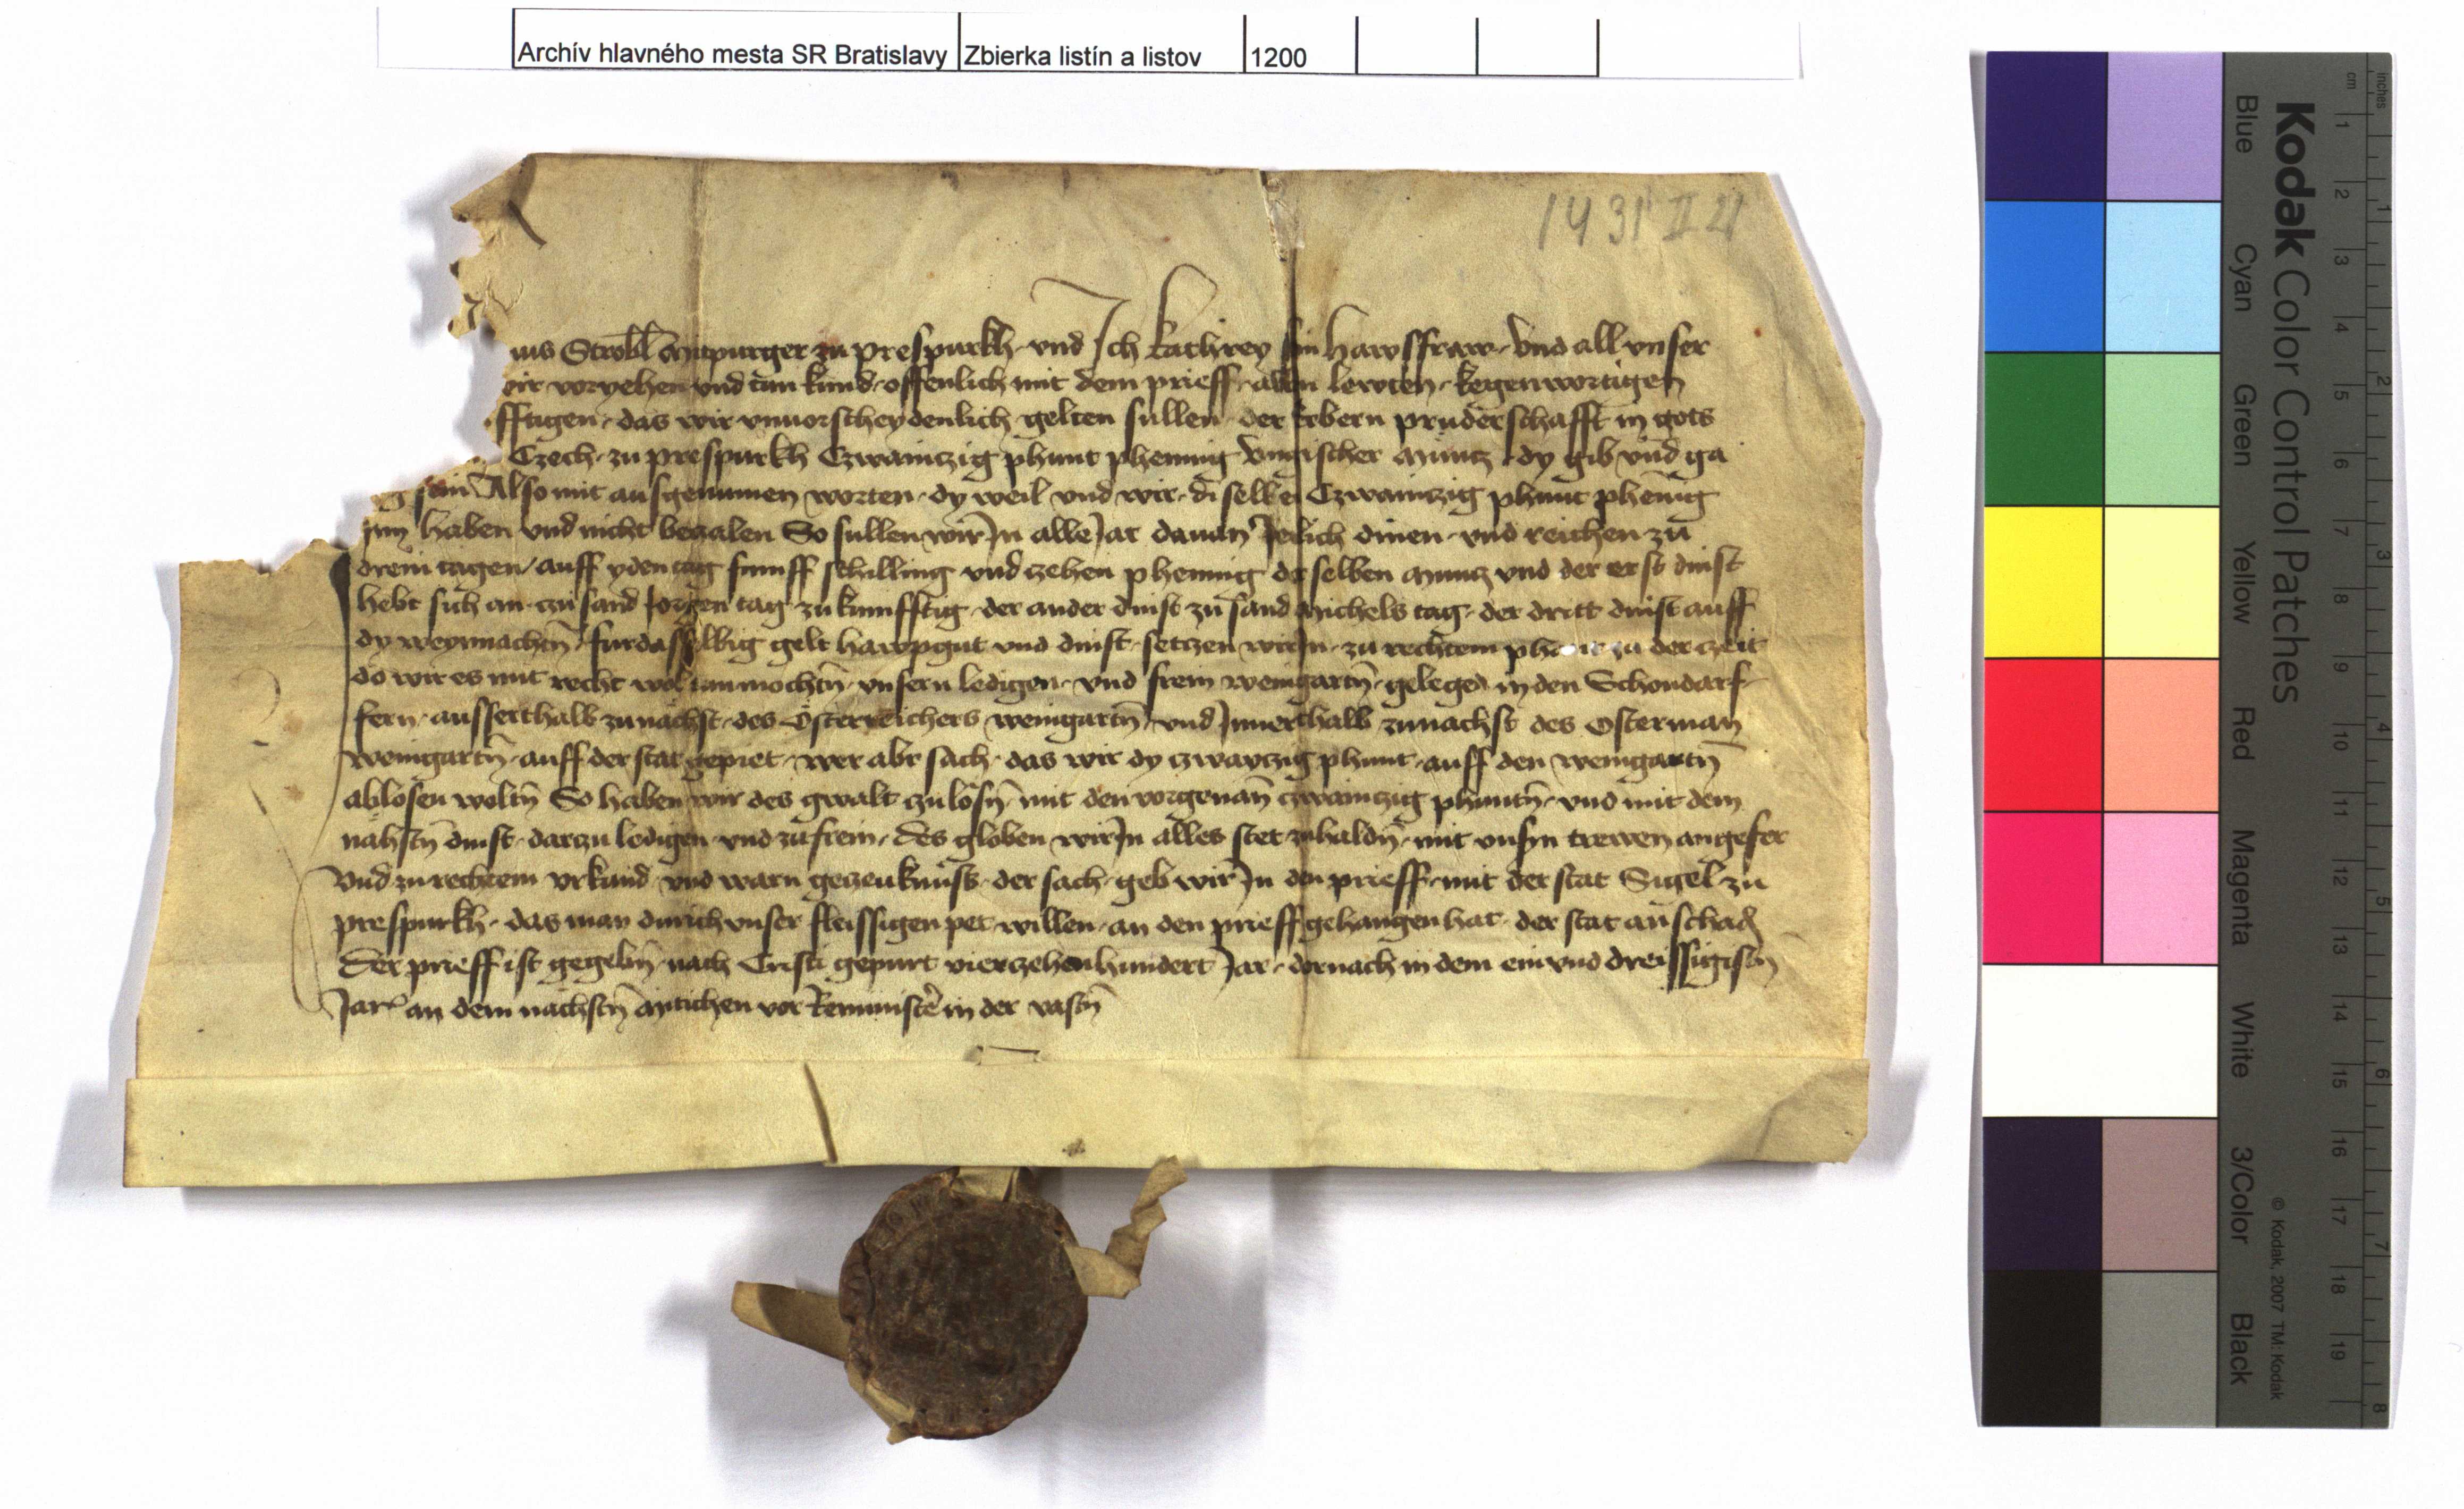 Archív hlavného mesta SR Bratislavy Zbierka listín a listov 1200
1431 II 21
Strobl mitpurger zu prespurkh und Ich kathrey sein hawsfraw und all unser
wir voryehen und tun kund offenlich mit dem prieff allen lewten kegenwortigen
fftigen das wir unuorscheydenlich gelten sullen der erbern pruderschafft in gots
Czech zu prespurkh Czwainczig phunt phening Ungrischer munz dy gib und ga
sein Also mit ausgenumen worten dy weil und wir di selben Czwainczig phunt phenig
Inn haben und nicht beczalen So sullen wir In alle Jar dauan Jerlich dinen und reichen zu
drein tagen auff yden tag funff schilling und zehen phening der selben munz und der erst dinst
hebt sich an zu sand Jorgen tag zu kunfftig der ander dinst zu sand michels tag der dritt dinst auff
dy weynnachtn fur dasselbig gelt hawpgut und dinst setzen wir In zu rechtem phant zu der zeit
do wir es mit recht wol tun mochtn unsern ledigen und frein weingartn gelegen in den Schondarf
fern ausserthalb zunachst des Osterreichers weingartn und Innerthalb zunachst des Osterman
weingartn auff der stat gepiet wer abr sach das wir dy zwayczig phunt auff den weingartn
ablosen woltn So haben wir des gwalt zu losn mit den vorgenan czwainczig phuntn und mit dem
nahstn dinst darzu ledigen und zu frein des globen wir In alles stet zuhaldn mit unsn trewen angefer
Und zu rechtem urkund und warn gezeuknuss der sach geb wir In den prieff mit der stat Sigel zu
prespurkh das man durich unser fleissigen pet willen an den prieff gehangen hat der stat an schad
Der prieff ist gegebn nach Cristi gepurt vierzehenhundert Jar dornach in dem ein und dreissigistn
Jar an dem nachstn mitichen vor Reministe in der vastn
Kodak Color Control Patches
Blue Cyan Green Yellow Red Magenta White 3/Color Black
© Kodak, 2007 TM: Kodak
cm 1 2 3 4 5 6 7 8 9 10 11 12 13 14 15 16 17 18 19
inches 1 2 3 4 5 6 7 8